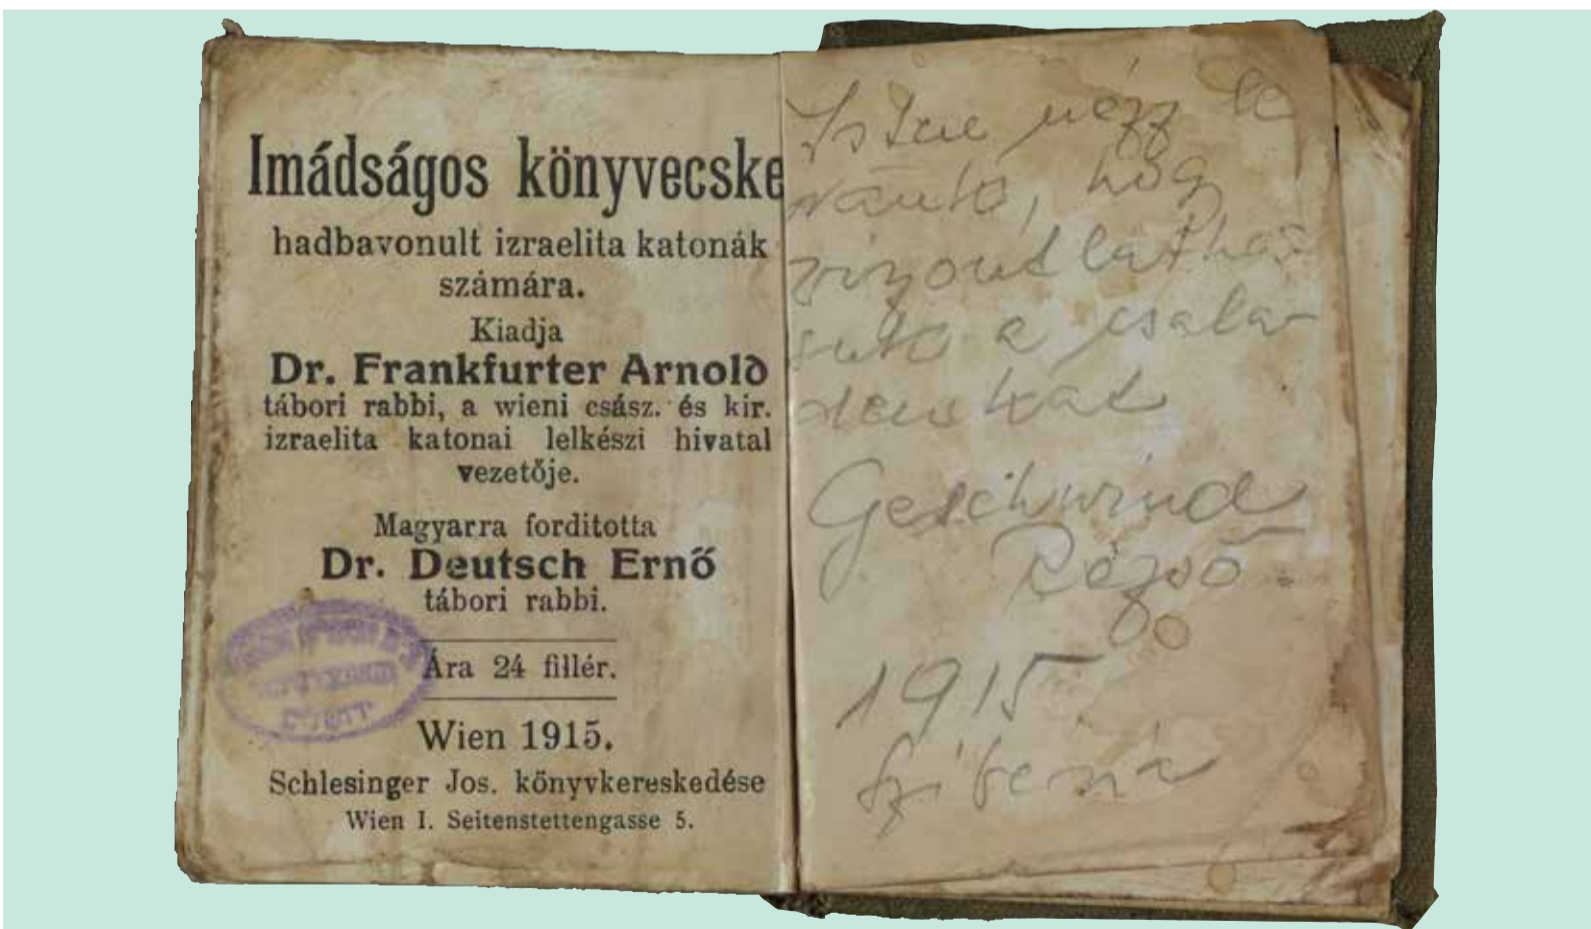 Imádságos könyvecske
hadbavonult izraelita katonák
számára.
Kiadja
Dr. Frankfurter Arnold
tábori rabbi, a wieni csász. és kir.
izraelita katonai lelkészi hivatal
vezetője.
Magyarra forditotta
Dr. Deutsch Ernő
tábori rabbi.
Ára 24 fillér.
Wien 1915.
Schlesinger Jos. könyvkereskedése
Wien I. Seitenstettengasse 5.
Isten nézz le
ránk, hog
vizontláthas
suk a csalá
dunkat
Geschwind
Rézsö
1915
Szibéria